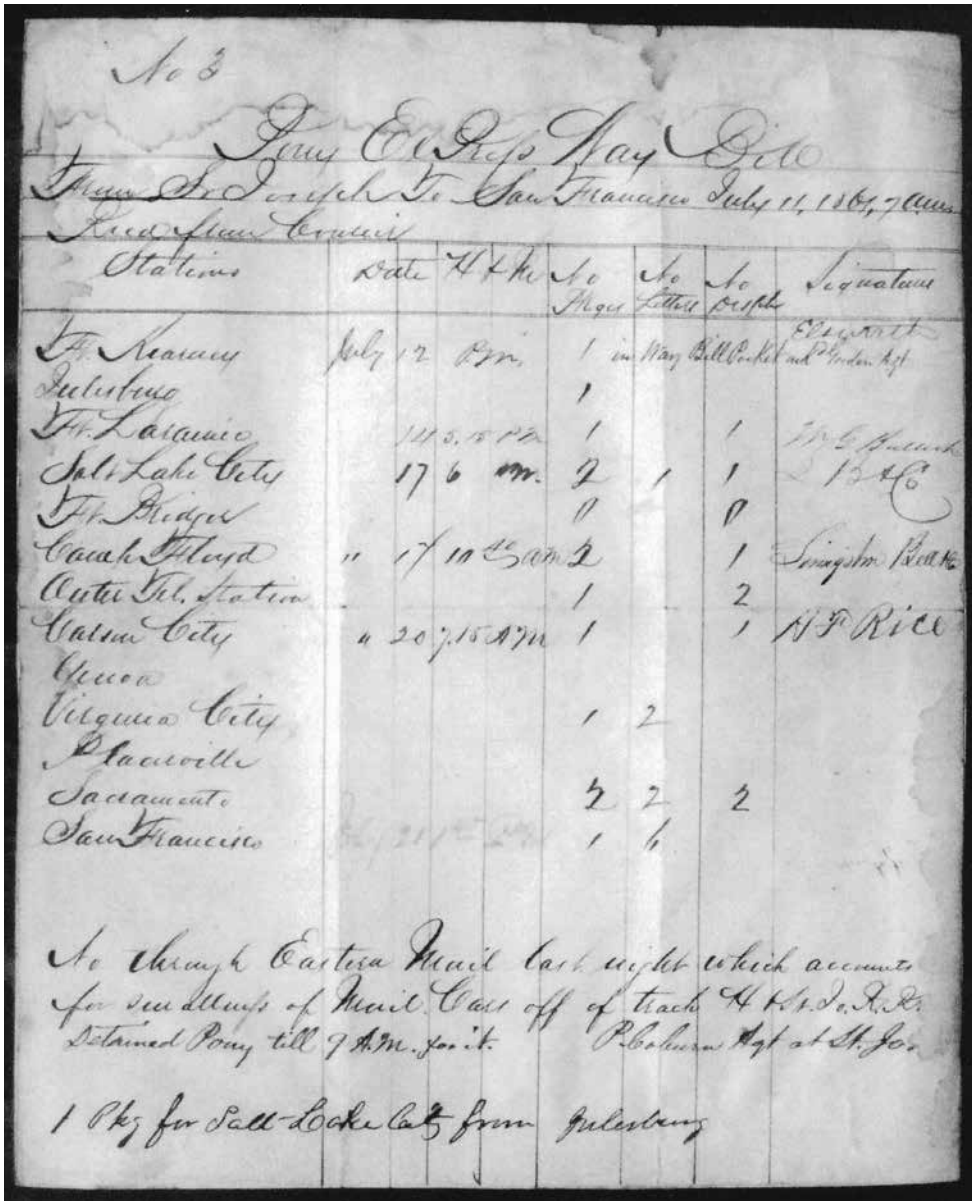 No 3
Pony Express Way Bill
From St Joseph To San Francisco July 11, 1861, 7 am
Stations Date H & M No Pkges No Letters No Desphs Signatures
Ft. Kearney July 12 P.M. 1 in Way Bill Pocket Agt
Julesburg 1
Ft. Laramie 14 5.15 PM 1 1
Salt Lake City 17 6 PM. 2 1 1
Ft. Bridger 0 0
Camp Floyd " 17 10 AM 2 1 Livingston Bell
Outer Tel. Station 1 2
Carson City " 20 7.15 AM 1 1 H F Rice
Genoa
Virginia City 1 2
Placerville
Sacramento 2 2 2
San Francisco 1 6
No through Eastern Mail last night which accounts
for smallness of Mail. Cars off of track H & St. Jo. R. R.
Detained Pony till 9 A.M. for it. P. Coburn Agt at St. Jo.
1 Pkg for Salt-Lake City from Julesburg